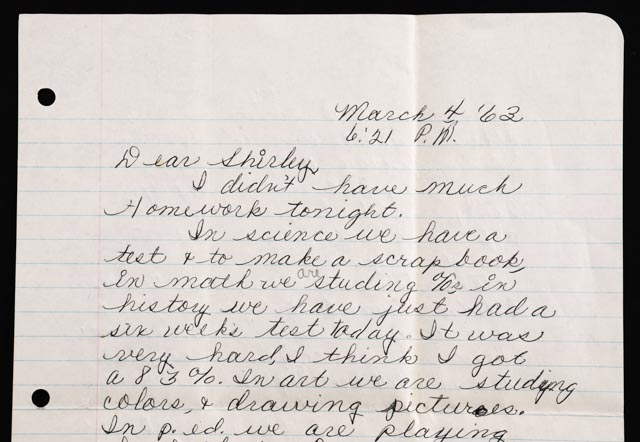 March 4 '63
6:21 P.M.
Dear Shirley,
I didn't have much
Homework tonight.
In science we have a
test & to make a scrap book,
in math we are studing %s in
history we have just had a
six weeks test today. It was
very hard, I think I got
a 83%. In art we are studing
colors, & drawing pictures.
In p. ed. we are playing